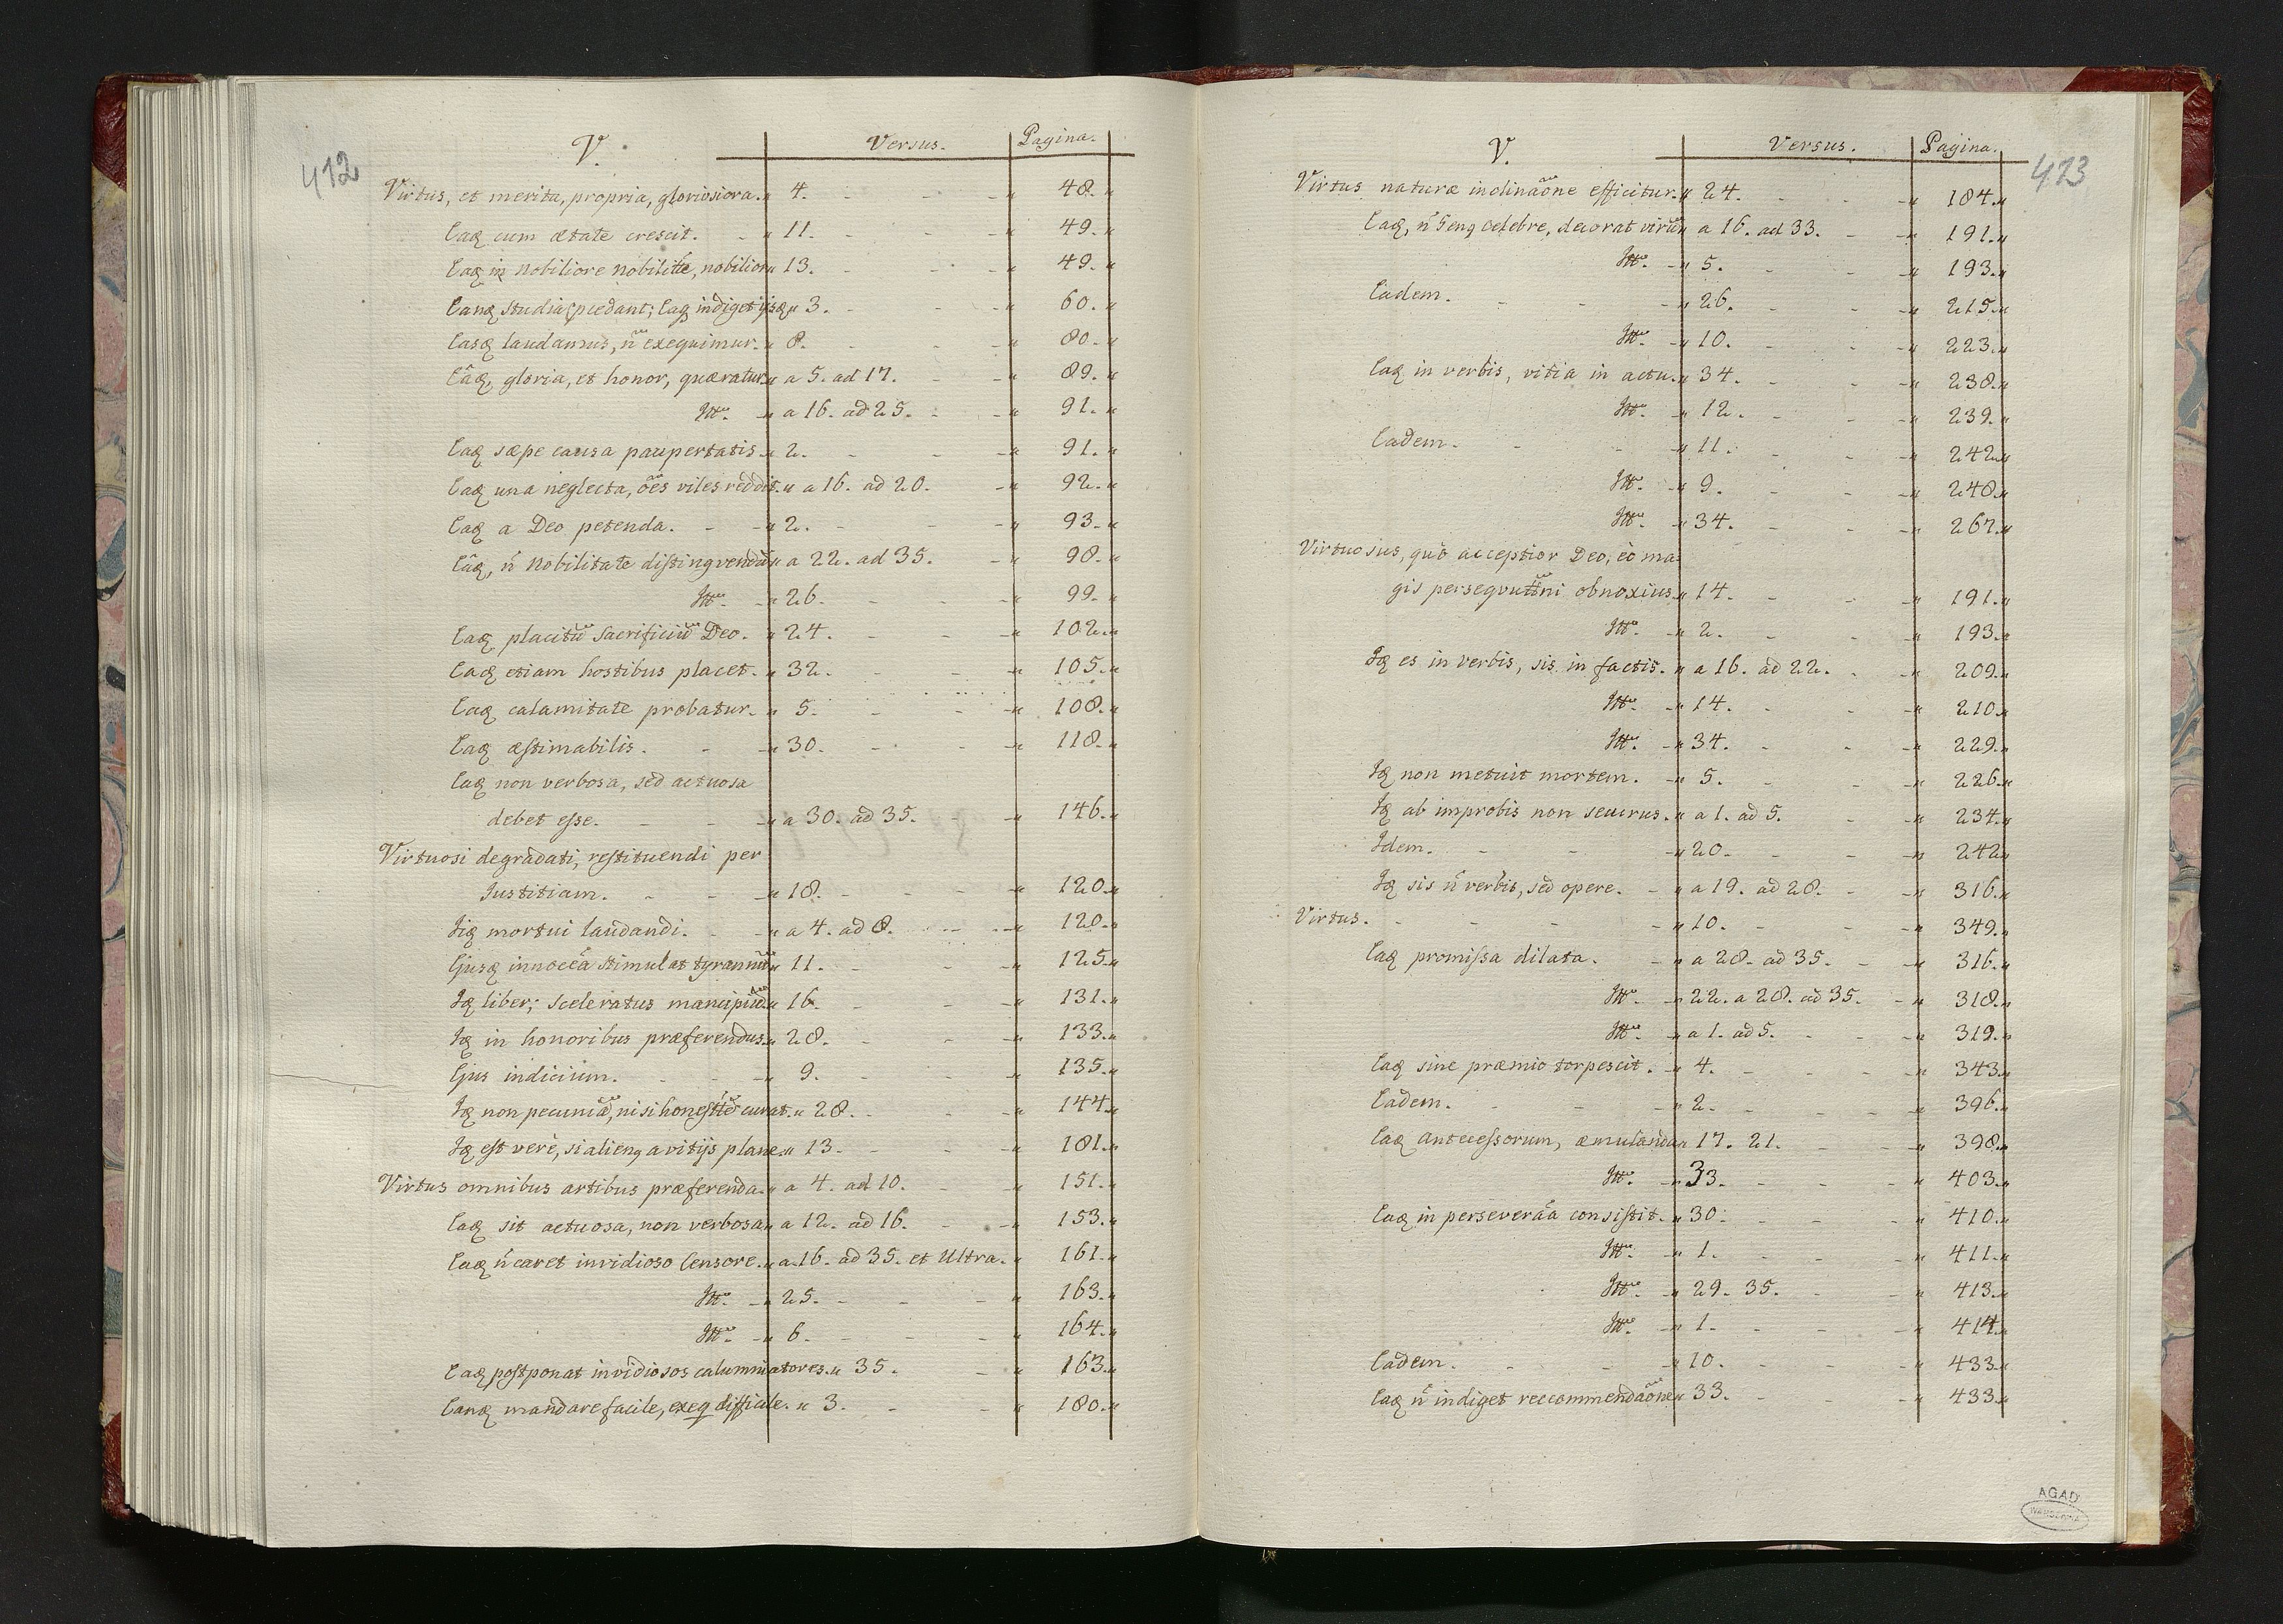 412
V. Versus. Pagina.
Virtus, et merita, propria, gloriosiora. 4. 48.
Eaq cum ætate crescit. 11. 49.
Eaq in nobiliore nobilitẽ, nobilior 13. 49.
Eanq studia prædant; Eaq indiget ijsq 3. 60.
Easq laudamus, ñ exequimur. 8. 80.
Eâq, gloria, et honor, quæratur a 5. ad 17. 89.
Itt. a 16. ad 25. 91.
Eaq sæpe causa paupertatis 2. 91.
Eaq una neglecta, õẽs viles reddit. a 16. ad 20. 92.
Eaq a Deo petenda. 2. 93.
Eâq, ñ Nobilitate distingvendũ a 22. ad 35. 98.
Itt. 26. 99.
Eaq placitũ Sacrificiũ Deo. 24. 102.
Eaq etiam hostibus placet. 32. 105.
Eaq calamitate probatur. 5. 108.
Eaq æstimabilis. 30. 118.
Eaq non verbosa, sed actuosa
debet esse. a 30. ad 35. 146.
Virtuosi degradati, restituendi per
Justitiam. 18. 120.
Iiq mortui laudandi. a 4. ad 8. 120.
Ejusq innocẽa stimulat tyrannũ 11. 125.
Iq liber; sceleratus mancipiũ 16. 131.
Iq in honoribus præferendus 28. 133.
Ejus indicium. 9. 135.
Iq non pecuniã, nisi honesttẽ curat. 28. 144.
Iq est verè, si alienq a vitijs plane. 13. 181.
Virtus omnibus artibus præferenda. a 4. ad 10. 151.
Eaq sit actuosa, non verbosa a 12. ad 16. 153.
Eaq ñ caret invidioso Censore. a 16. ad 35. et Ultra. 161.
Itt. 25. 163.
Itt. 6. 164.
Eaq postponat invidiosos calumniatores. 35. 163.
Eanq mandare facile, exeq difficile. 3. 180.
423
V. Versus. Pagina.
Virtus naturæ inclinãõne efficitur. 24. 184.
Eaq, ñ Genq celebre, decorat virũ a 16. ad 33. 191.
Itt. 5. 193.
Eadem. 26. 215.
Itt. 10. 223.
Eaq in verbis, vitia in actu. 34. 238.
Itt. 12. 239.
Eadem. 11. 242.
Itt. 9. 248.
Itt. 34. 267.
Virtuosus, quò acceptior Deo, eò ma
gis persequttni obnoxius 14. 191.
Itt. 2. 193.
Iq es in verbis, sis in factis. a 16. ad 22. 209.
Itt. 14. 210.
Itt. 34. 229.
Iq non metuit mortem. 5. 226.
Iq ab improbis non securus. a 1. ad 5. 234.
Idem. 20. 242
Iq sis ñ verbis, sed opere. a 19. ad 28. 316.
Virtus. 10. 349.
Eaq promissa dilata. a 28. ad 35. 316.
Itt. 22. a 28. ad 35. 318.
Itt. a 1. ad 5. 319.
Eaq sine præmio torpescit. 4. 343.
Eadem. 2. 396.
Eaq Antecessorum, æmulanda 17. 21. 398.
Itt. 33. 403.
Eaq in perseverãa consistit. 30. 410.
Itt. 1. 411.
Itt. 29. 35. 413.
Itt. 1. 414.
Eadem. 10. 433.
Eaq ñ indiget reccommendãõne 33. 433.
AGAD
WARSZAWA